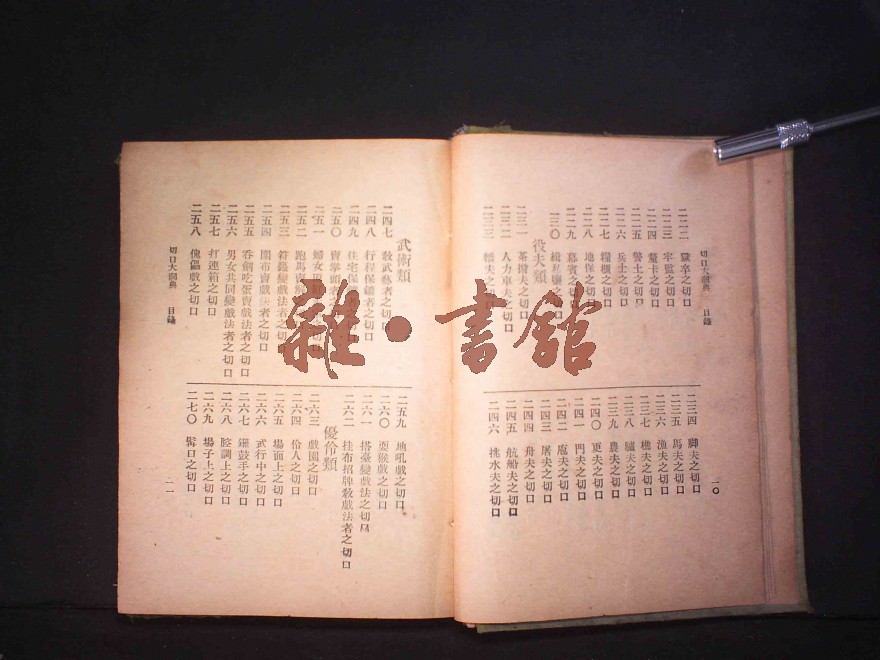 切口大詞典　目錄
二二二　獄卒之切口
二二三　牢監之切口
二二四　釐卡之切口
二二五　警士之切口
二二六　兵士之切口
二二七　糧櫃之切口
二二八　地保之切口
二二九　幕賓之切口
二三〇　緝私
役夫類
二三一　茶擔夫之切口
二三二　人力車夫之切口
二三三　轎夫之切口
二三四　脚夫之切口
二三五　馬夫之切口
二三六　漁夫之切口
二三七　樵夫之切口
二三八　驢夫之切口
二三九　農夫之切口
二四〇　更夫之切口
二四一　門夫之切口
二四二　庖夫之切口
二四三　屠夫之切口
二四四　舟夫之切口
二四五　航船夫之切口
二四六　挑水夫之切口
二〇
武術類
二四七　敎武藝者之切口
二四八　行程保鏢者之切口
二四九　住宅保
二五〇　賣拳頭者之切口
二五一　婦女
二五二　跑馬賣
二五三　符籙變戲法者之切口
二五四　圍布賣戲法者之切口
二五五　呑劍吃蛋賣戲法者之切口
二五六　男女共同變戲法者之切口
二五七　打連箱之切口
二五八　傀儡戲之切口
二五九　地吼戲之切口
二六〇　耍猴戲之切口
二六一　搭臺變戲法之切口
二六二　挂布招牌敎戲法者之切口
優伶類
二六三　戲園之切口
二六四　伶人之切口
二六五　場面上之切口
二六六　武行中之切口
二六七　鑼鼓手之切口
二六八　腔調上之切口
二六九　場子上之切口
二七〇　髯口之切口
切口大詞典　目錄
二一
雜·書館